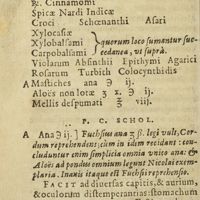 ℞. Cinnamomi
Spicæ Nardi Indicæ
Croci Schœnanthi Asari
Xylocasiæ
Xylobalsami } quorum loco sumantur suc-
Carpobalsami cedanea, vt suprà.
Violarum Absinthii Epithymi Agarici
Rosarum Turbith Colocynthidis
A Mastiches ana ℈ ij.
Aloës non lotæ ʒ x. ℈ ij.
Mellis despumati ℥ viij.
P. C. SCHOL.
A Ana ℈ ij. ] Fuchsius ana ʒ ß. legi vult, Cor-
dum reprehendens, cùm in idem recidant: con-
cluduntur enim simplicia omnia vnico ana: &
Aloës ad pondus omnium legunt Nicolai exem-
plaria. Inanis itaque est Fuchsij reprehensio.
FACIT ad diuersas capitis, & aurium,
& oculorum distemperantias: stomachum